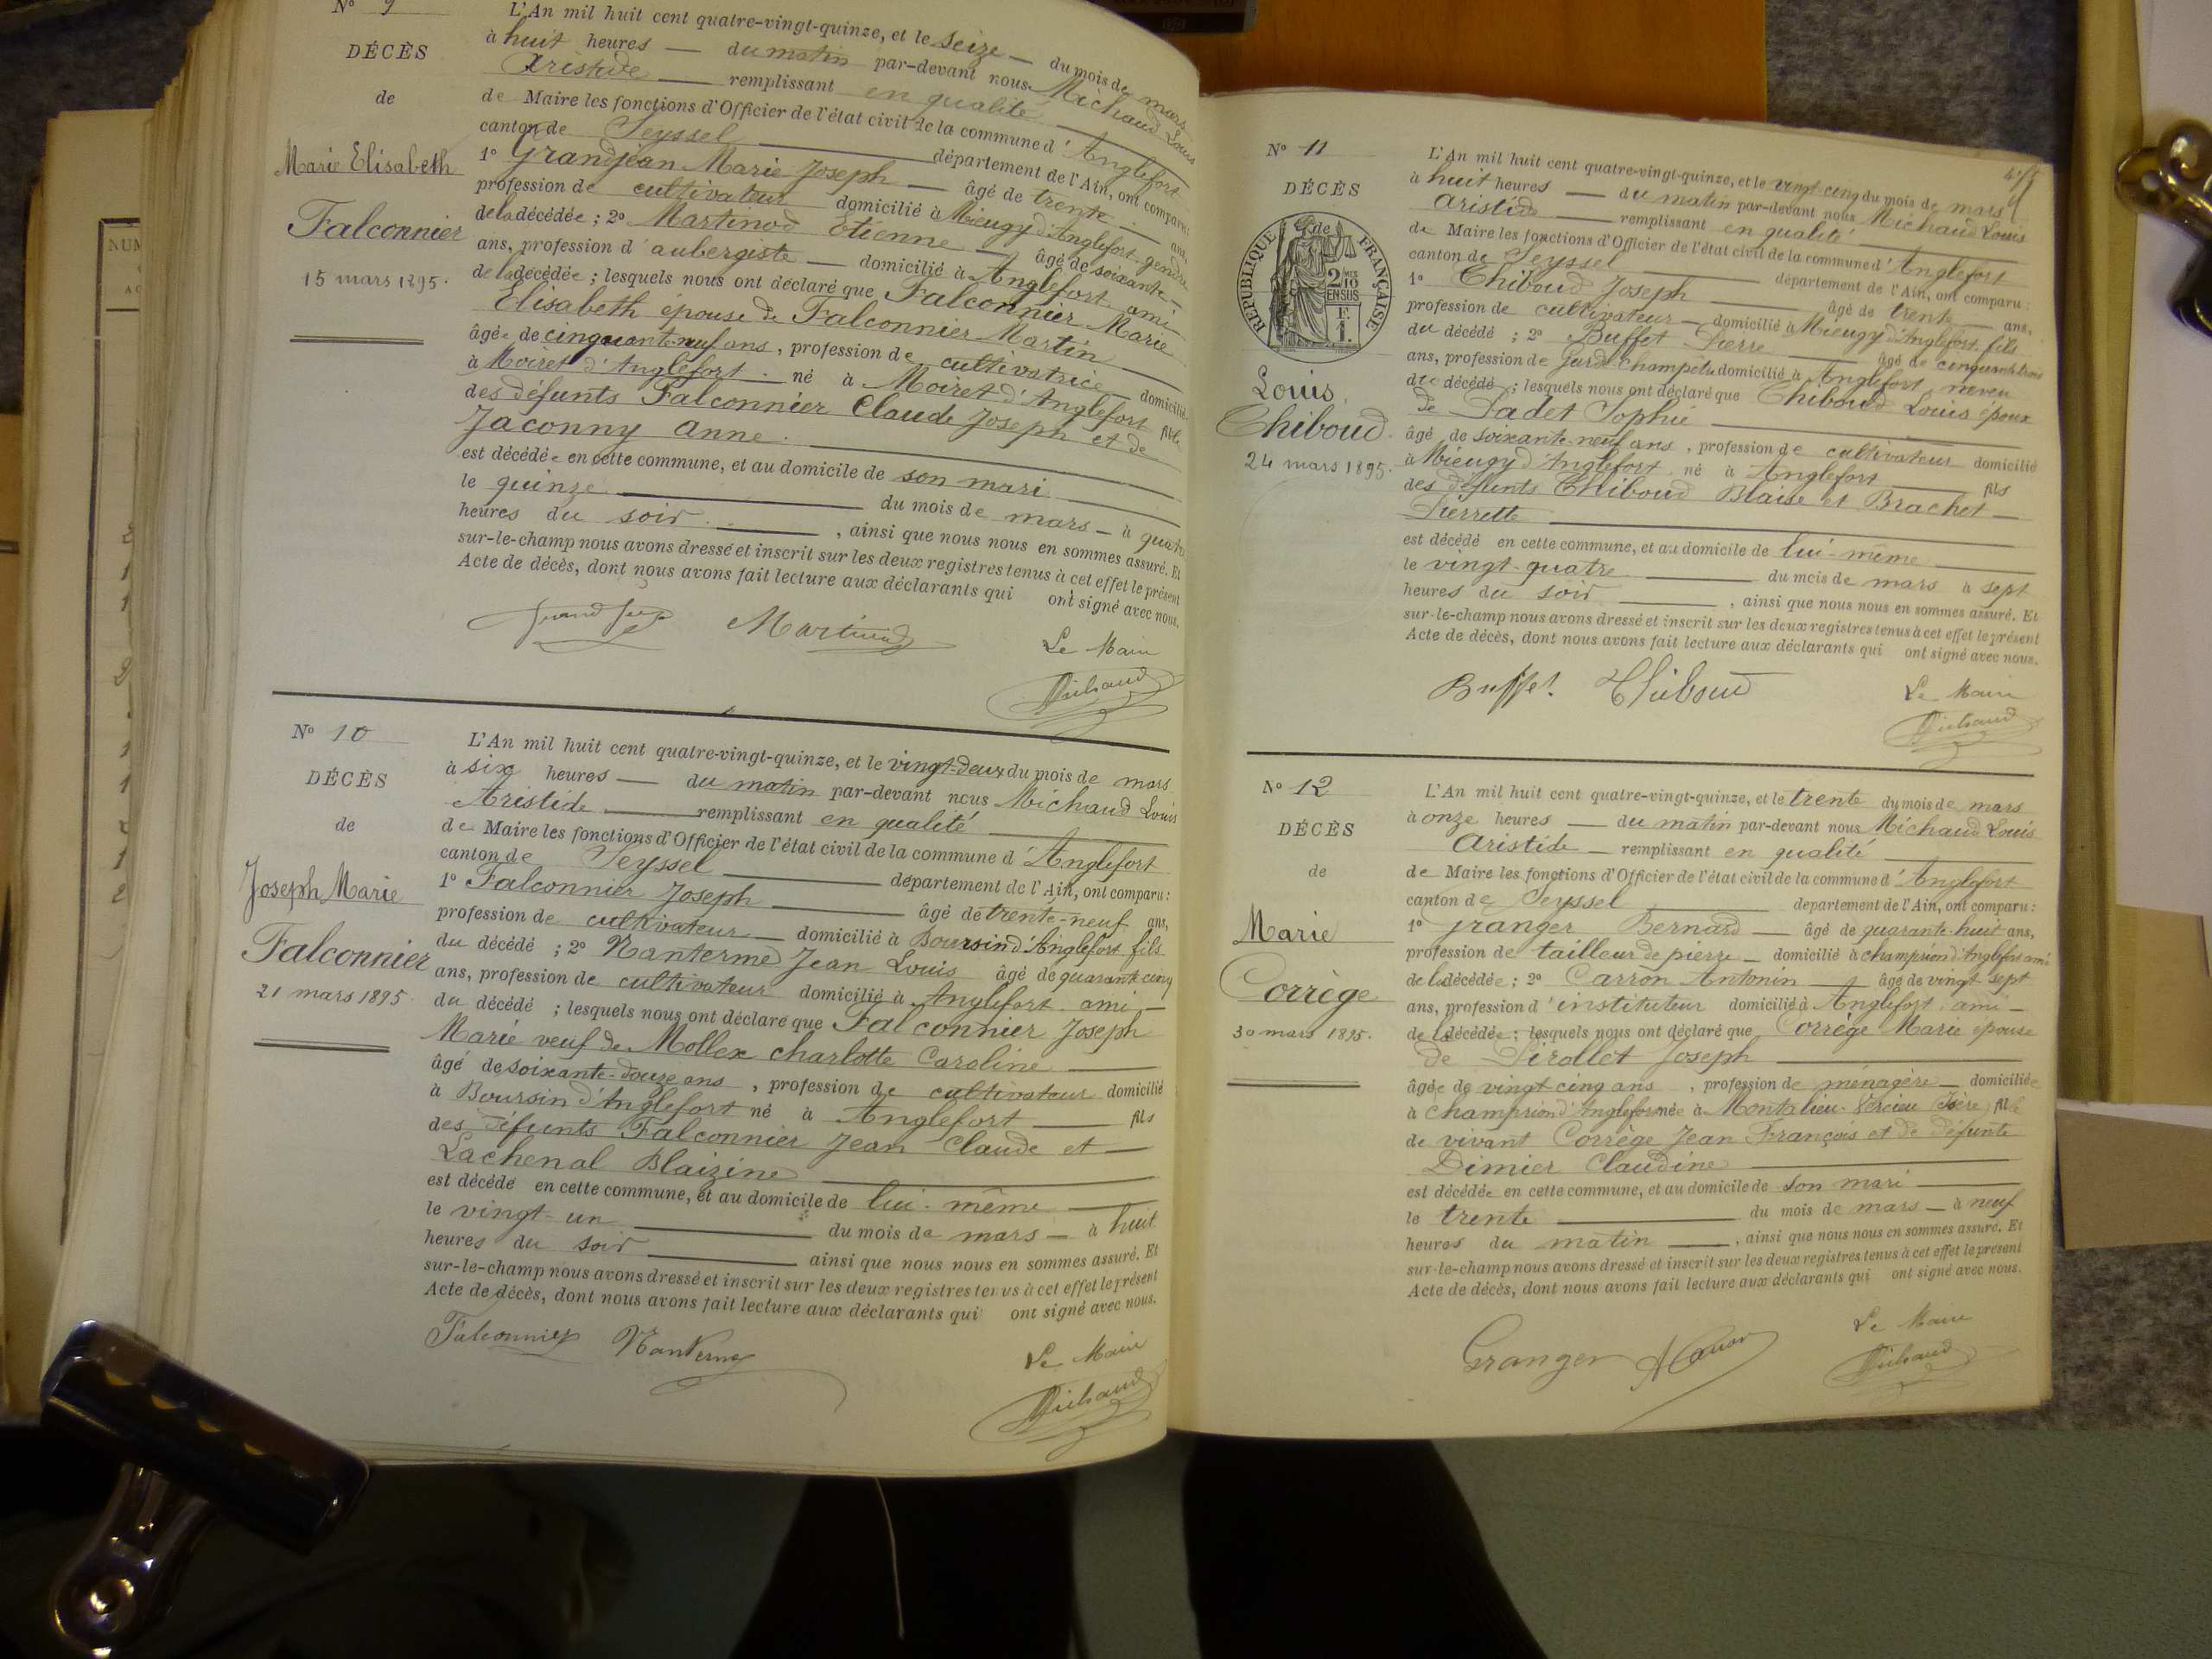 N° 9
DÉCÈS
de
Marie Elisabeth
Falconnier
15 mars 1895.
L'An mil huit cent quatre-vingt-quinze, et le seize du mois de mars
à huit heures du matin par-devant nous Michaud Louis
Aristide remplissant en qualité
de Maire les fonctions d'Officier de l'état civil de la commune d'Anglefort
canton de Seyssel département de l'Ain, ont comparu
1° Grandjean Marie Joseph âgé de trente ans,
profession de cultivateur domicilié à Mieugy d'Anglefort gendre
de la décédée ; 2° Martinod Etienne âgé de soixante
ans, profession d'aubergiste domicilié à Anglefort ami
de la décédée ; lesquels nous ont déclaré que Falconnier Marie
Elisabeth épouse de Falconnier Martin
âgée de cinquante-neuf ans, profession de cultivatrice domicilié
à Moiret d'Anglefort. né à Moiret d'Anglefort fille
des défunts Falconnier Claude Joseph et de
Jaconny Anne.
est décédée en cette commune, et au domicile de son mari
le quinze du mois de mars à quatre
heures du soir, ainsi que nous nous en sommes assuré. Et
sur-le-champ nous avons dressé et inscrit sur les deux registres tenus à cet effet le présent
Acte de décès, dont nous avons fait lecture aux déclarants qui ont signé avec nous.
Martinod
Le Maire
Michaud
N° 10
DÉCÈS
de
Joseph Marie
Falconnier
21 mars 1895.
L'An mil huit cent quatre-vingt-quinze, et le vingt-deux du mois de mars
à six heures du matin par-devant nous Michaud Louis
Aristide remplissant en qualité
de Maire les fonctions d'Officier de l'état civil de la commune d'Anglefort
canton de Seyssel département de l'Ain, ont comparu :
1° Falconnier Joseph âgé de trente-neuf ans,
profession de cultivateur domicilié à Boursin d'Anglefort fils
du décédé ; 2° Nanterme Jean Louis âgé de quarante cinq
ans, profession de cultivateur domicilié à Anglefort ami
du décédé ; lesquels nous ont déclaré que Falconnier Joseph
Marie veuf de Mollex Charlotte Caroline
âgé de soixante-douze ans, profession de cultivateur domicilié
à Boursin d'Anglefort né à Anglefort fils
des défunts Falconnier Jean Claude et
Lachenal Blaizine
est décédé en cette commune, et au domicile de lui-même
le vingt-un du mois de mars à huit
heures du soir ainsi que nous nous en sommes assuré. Et
sur-le-champ nous avons dressé et inscrit sur les deux registres tenus à cet effet le présent
Acte de décès, dont nous avons fait lecture aux déclarants qui ont signé avec nous.
Falconnier Nanterme
Le Maire
Michaud
N° 11
DÉCÈS
RÉPUBLIQUE FRANÇAISE
2/10 EN SUS
Louis
Thiboud.
24 mars 1895.
L'An mil huit cent quatre-vingt-quinze, et le vingt-cinq du mois de mars
à huit heures du matin par-devant nous Michaud Louis
Aristide remplissant en qualité
de Maire les fonctions d'Officier de l'état civil de la commune d'Anglefort
canton de Seyssel département de l'Ain, ont comparu :
1° Thiboud Joseph âgé de trente ans,
profession de cultivateur domicilié à Mieugy d'Anglefort fils
du décédé ; 2° Buffet Pierre âgé de cinquante trois
ans, profession de Garde Champêtre domicilié à Anglefort neveu
du décédé ; lesquels nous ont déclaré que Thiboud Louis époux
de Padet Sophie
âgé de soixante-neuf ans, profession de cultivateur domicilié
à Mieugy d'Anglefort né à Anglefort fils
des défunts Thiboud Blaise et Brachet
Pierrette
est décédé en cette commune, et au domicile de lui-même
le vingt-quatre du mois de mars à sept
heures du soir, ainsi que nous nous en sommes assuré. Et
sur-le-champ nous avons dressé et inscrit sur les deux registres tenus à cet effet le présent
Acte de décès, dont nous avons fait lecture aux déclarants qui ont signé avec nous.
Buffet Thiboud
Le Maire
Michaud
N° 12
DÉCÈS
de
Marie
Corrège
30 mars 1895.
L'An mil huit cent quatre-vingt-quinze, et le trente du mois de mars
à onze heures du matin par-devant nous Michaud Louis
Aristide remplissant en qualité
de Maire les fonctions d'Officier de l'état civil de la commune d'Anglefort
canton de Seyssel département de l'Ain, ont comparu :
1° Granger Bernard âgé de quarante-huit ans,
profession de tailleur de pierre domicilié à Champrion d'Anglefort ami
de la décédée ; 2° Carron Antonin âgé de vingt sept
ans, profession d'instituteur domicilié à Anglefort ami
de la décédée ; lesquels nous ont déclaré que Corrège Marie épouse
de Pirollet Joseph
âgée de vingt-cinq ans, profession de ménagère domiciliée
à Champrion d'Anglefort née à Montalieu-Vercieu (Isère) fille
de vivant Corrège Jean François et de défunte
Dimier Claudine
est décédée en cette commune, et au domicile de son mari
le trente du mois de mars à neuf
heures du matin, ainsi que nous nous en sommes assuré. Et
sur-le-champ nous avons dressé et inscrit sur les deux registres tenus à cet effet le présent
Acte de décès, dont nous avons fait lecture aux déclarants qui ont signé avec nous.
Granger
Le Maire
Michaud